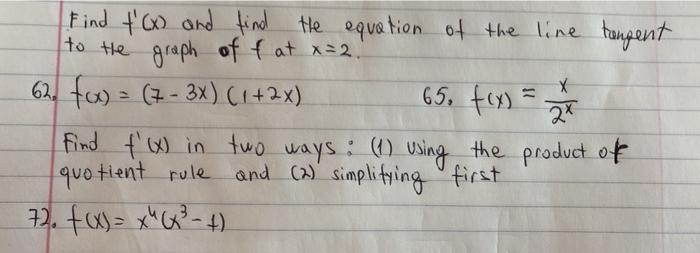 Find f'(x) and find the equation of the line tangent
to the graph of f at x=2.
62. f(x) = (7-3x) (1+2x) 65. f(x) = x/2^x
Find f'(x) in two ways: (1) using the product of
quotient rule and (2) simplifying first
72. f(x) = x⁴(x³-1)